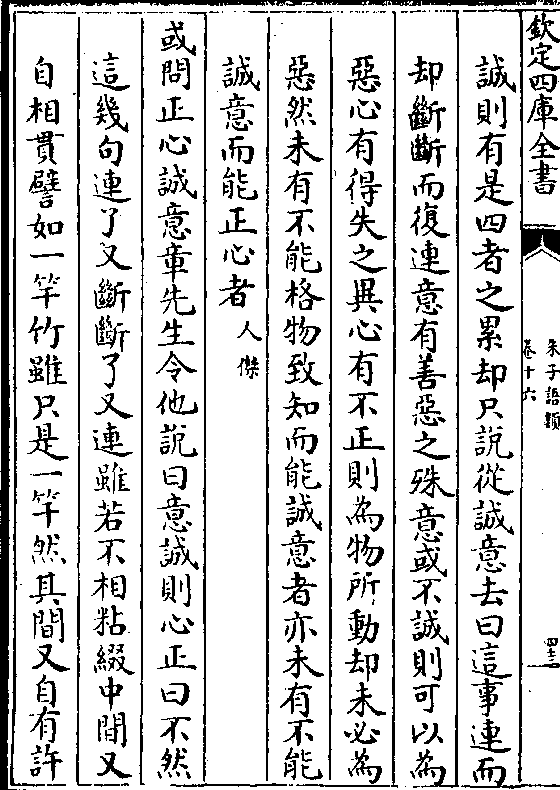 欽定四庫全書
朱子語類
卷十六
四十二
誠則有是四者之累却只說從誠意去曰這事連而
却斷斷而復連意有善惡之殊意或不誠則可以為
惡心有得失之異心有不正則為物所動却未必為
惡然未有不能格物致知而能誠意者亦未有不能
誠意而能正心者人傑
或問正心誠意章先生令他說曰意誠則心正曰不然
這幾句連了又斷斷了又連雖若不相粘綴中間又
自相貫譬如一竿竹雖只是一竿然其間又自有許